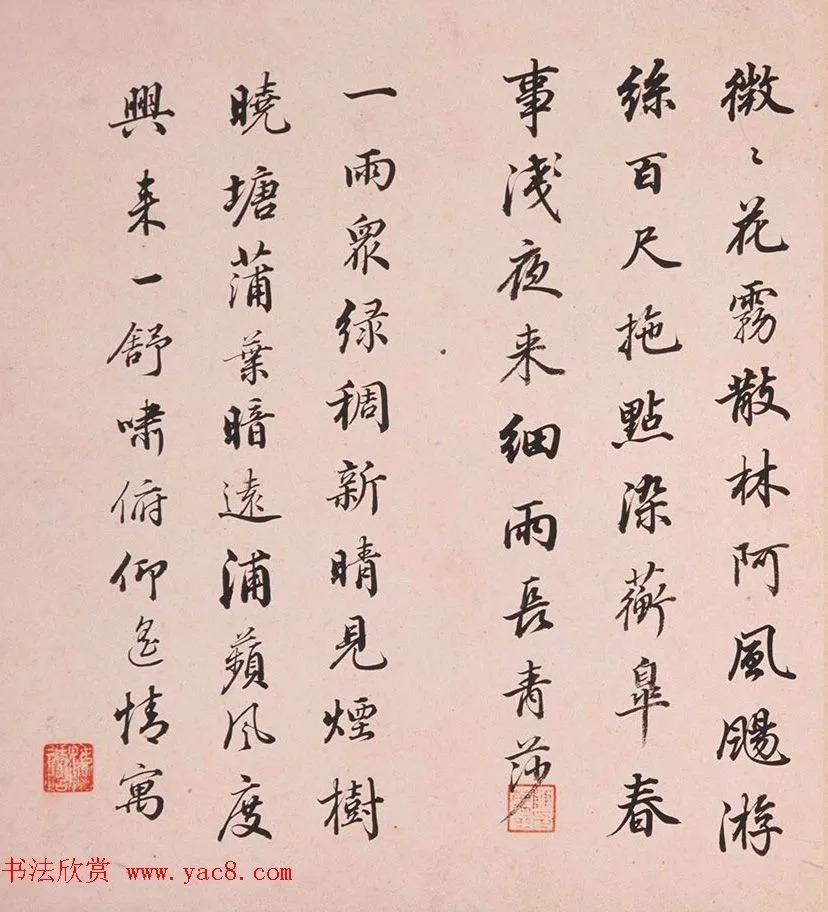 微〻花霧散林阿風颺游
絲百尺拖點染蘅皐春
事淺夜来细雨長青莎
一雨眾绿稠新晴見煙樹
曉塘蒲葉暗遠浦蘋风度
興来一舒嘯俯仰遙情寓
书法欣赏 www.yac8.com